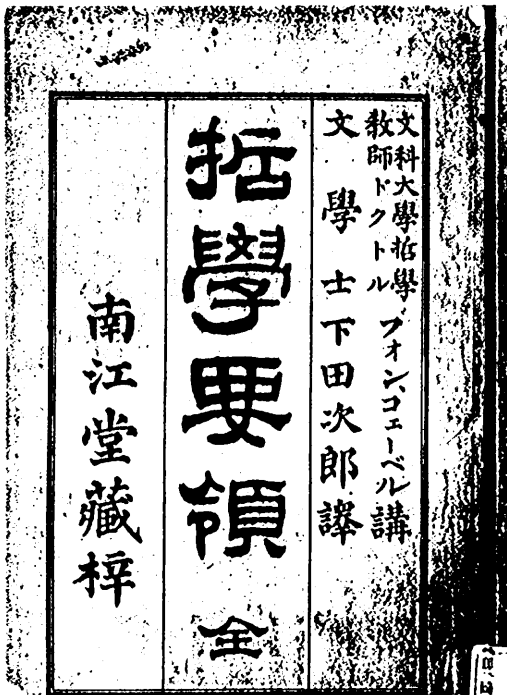 文科大學哲學
教師ドクトル
フォン、コェーベル講
文學士下田次郎譯
哲學要領 全
南江堂藏梓